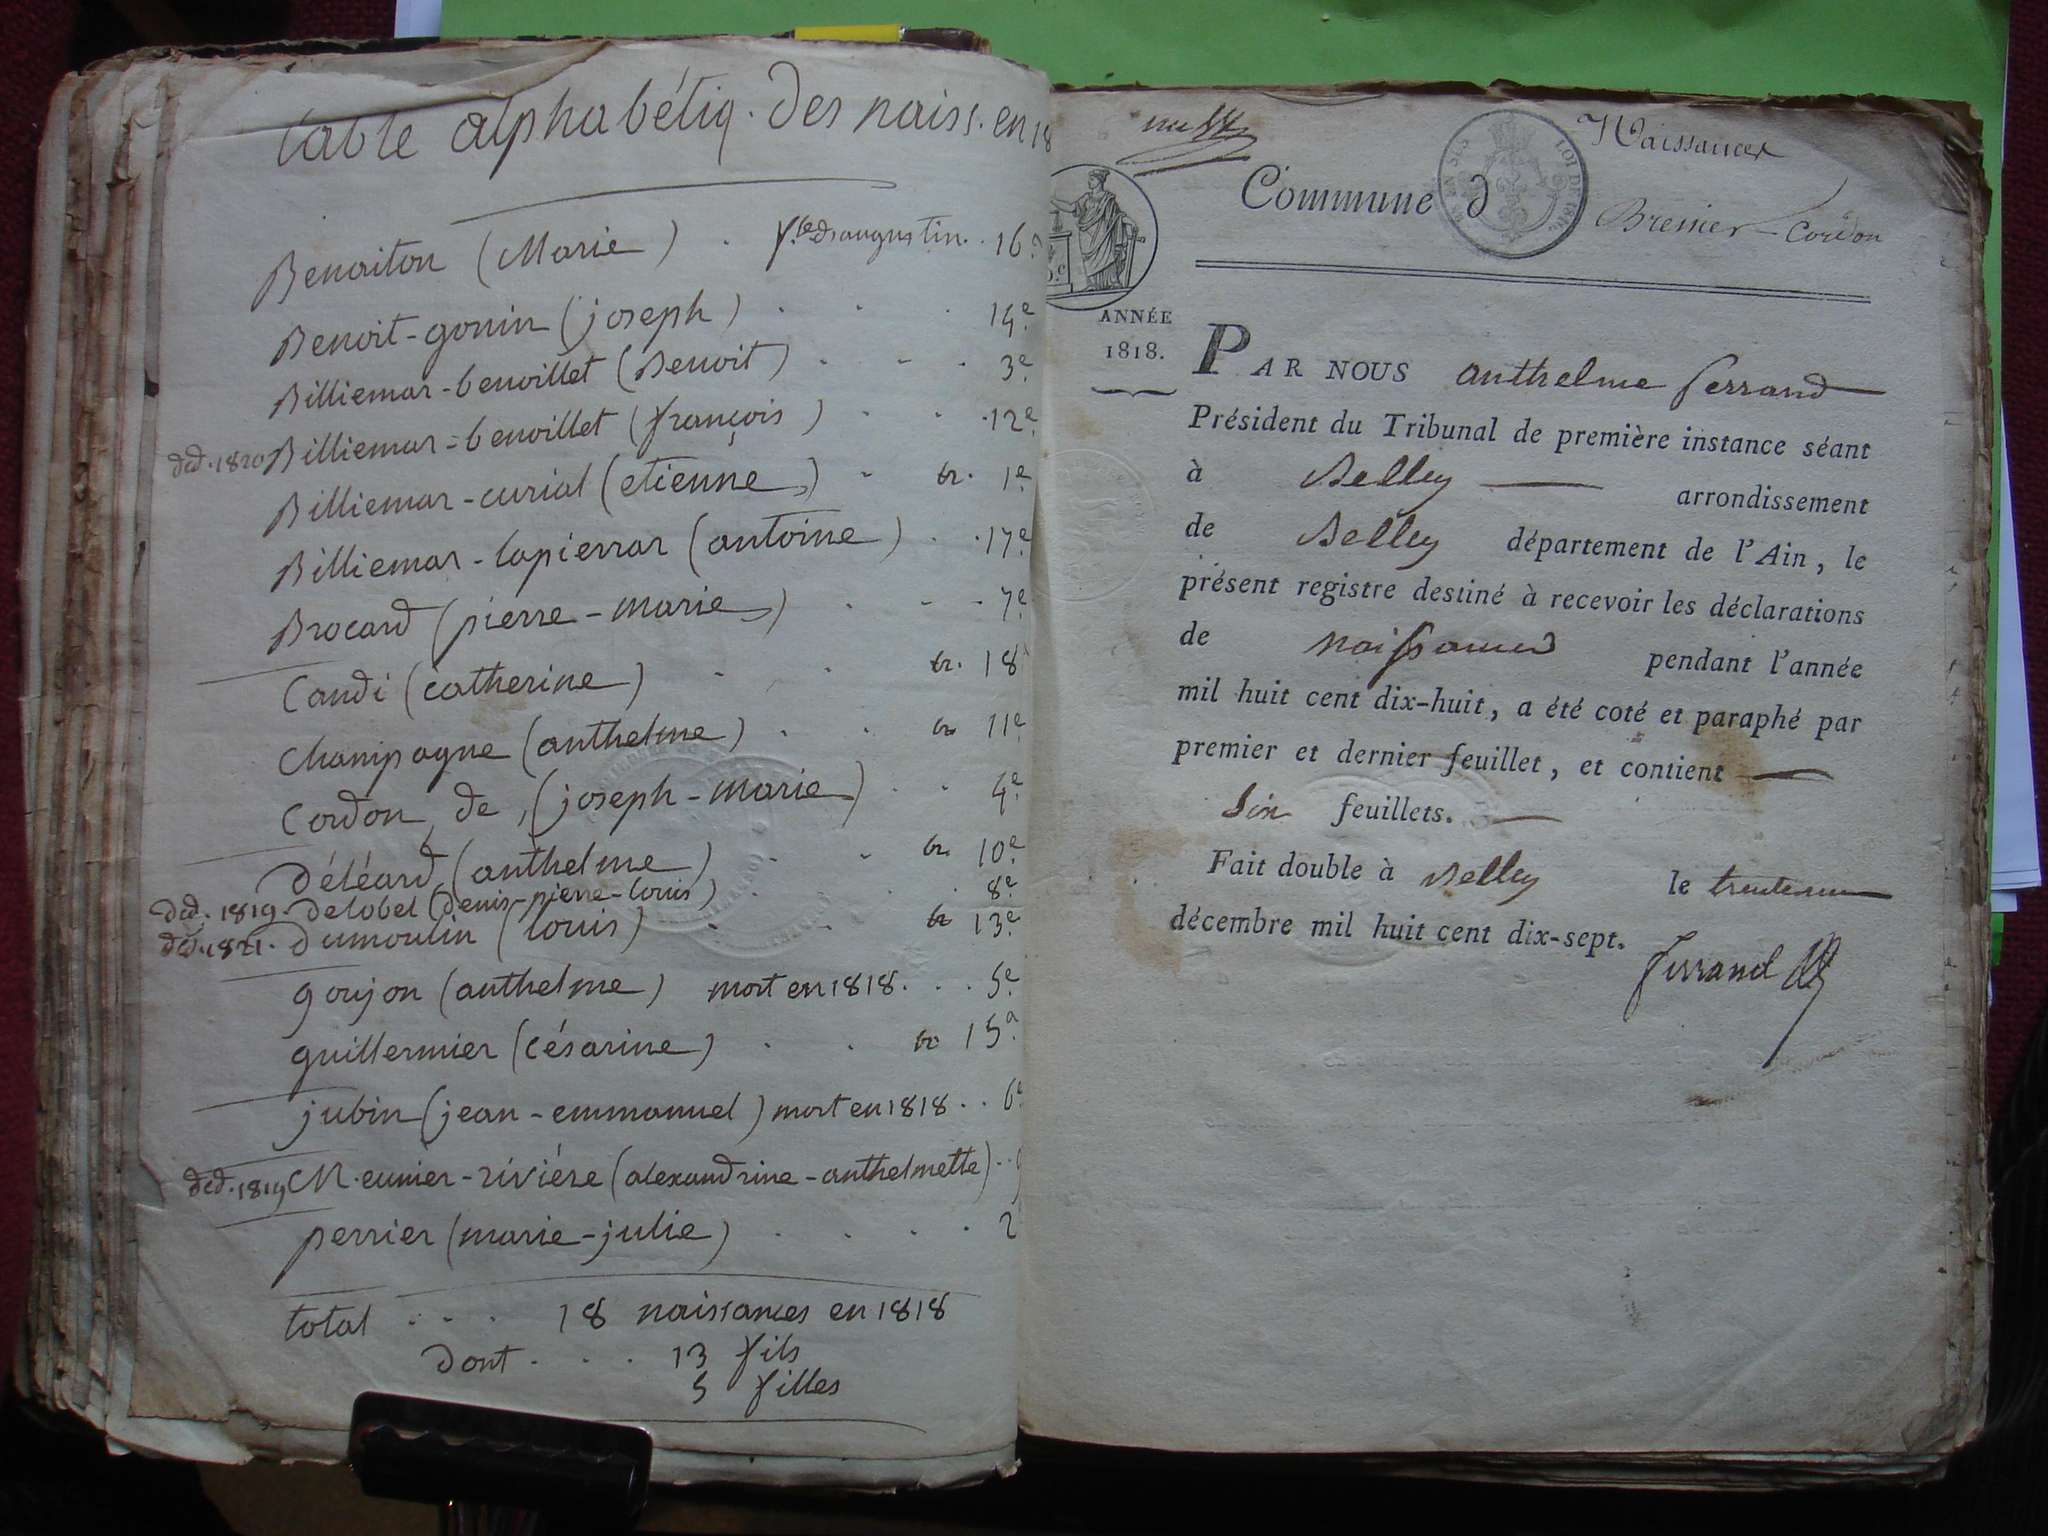 table alphabétiq. des naiss. en 18
Benoiton (Marie) . f.le d'augustin. . 16
Benoit-gonin (joseph) . . . 14e
Billiemar-benoillet (Benoit) . - . 3e
ded. 1820 Billiemar-benoillet (françois) . . 12e
Billiemar-curial (etienne) . br. 1e
Billiemar-lapierrar (antoine) . . 17e
Brocard (pierre-marie) . - - 7e
Candi (catherine) . . br. 18
Champagne (anthelme) . . br 11e
Cordon, de, (joseph-marie) . . 4e
Déléard (anthelme) . . br. 10e
ded. 1819. Delobel (denis-pierre-louis) . . 8e
ded. 1821. dumoulin (louis) . . br 13e
goujon (anthelme) mort en 1818. . . 5e
guillermier (Césarine) . . br 15a
jubin (jean-emmanuel) mort en 1818 . . 6e
ded. 1819 Meunier-riviére (alexandrine-anthelmette) . . 9
perrier (marie-julie) . . . 2
total . . . 18 naissances en 1818
dont . . . 13 fils
5 filles
Naissances
LOI DE 1816
Commune d Brenier-Cordon
ANNÉE
1818.
PAR NOUS anthelme ferrand
Président du Tribunal de première instance séant
à Belley arrondissement
de Belley département de l'Ain, le
présent registre destiné à recevoir les déclarations
de naissances pendant l'année
mil huit cent dix-huit, a été coté et paraphé par
premier et dernier feuillet, et contient
Six feuillets.
Fait double à Belley le trente un
décembre mil huit cent dix-sept.
ferrand